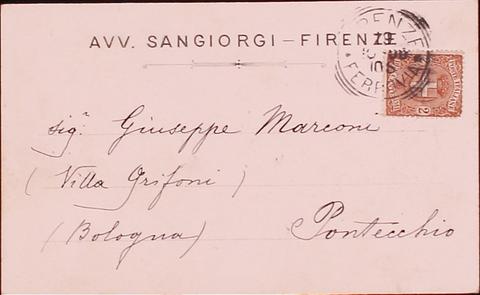 AVV. SANGIORGI – FIRENZE
FIRENZE
FERROVIA
2
Sig.r Giuseppe Marconi
(Villa Grifoni)
(Bologna) Pontecchio